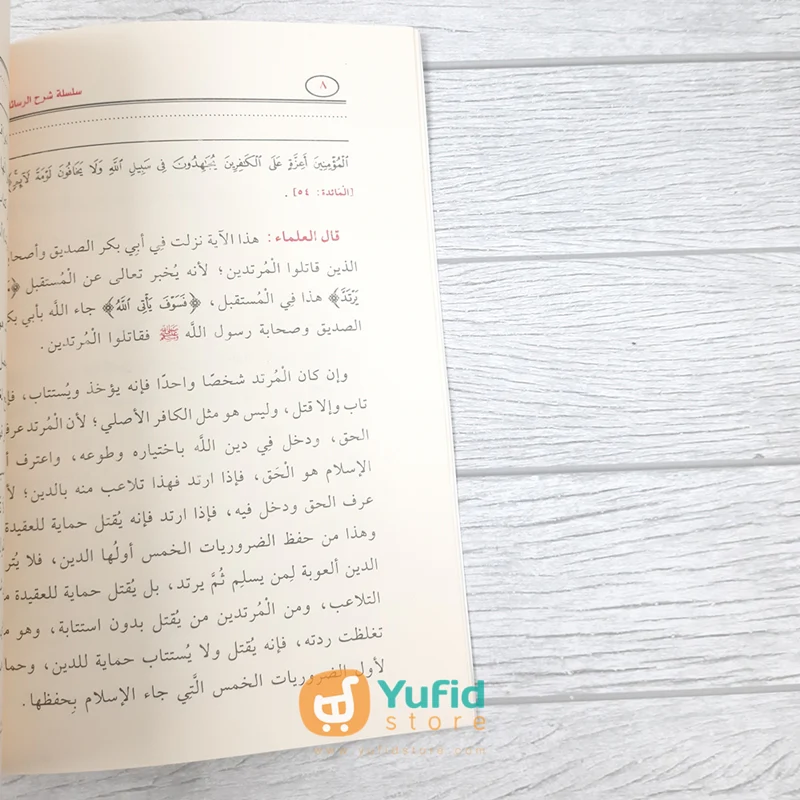 ٨
سلسلة شرح الرسائل
ٱلْمُؤْمِنِينَ أَعِزَّةٍ عَلَى ٱلْكَٰفِرِينَ يُجَٰهِدُونَ فِى سَبِيلِ ٱللَّهِ وَلَا يَخَافُونَ لَوْمَةَ لَآئِمٍ
[الْمَائدة: ٥٤] .
قال العلماء: هذا الآية نزلت فِي أبِي بكر الصديق وأصحابه
الذين قاتلوا الْمُرتدين؛ لأنه يُخبر تعالى عن الْمُستقبل
يَرْتَدَّ﴾ هذا فِي الْمُستقبل، ﴿فَسَوْفَ يَأْتِى ٱللَّهُ﴾ جاء اللَّه بأبي بكر
الصديق وصحابة رسول اللَّه ﷺ فقاتلوا الْمُرتدين.
وإن كان الْمُرتد شخصًا واحدًا فإنه يؤخذ ويُستتاب،
تاب وإلا قتل، وليس هو مثل الكافر الأصلي؛ لأن الْمُرتد عرف
الحق، ودخل فِي دين اللَّه باختياره وطوعه، واعترف
الإسلام هو الْحَق، فإذا ارتد فهذا تلاعب منه بالدين؛
عرف الحق ودخل فيه، فإذا ارتد فإنه يُقتل حماية للعقيدة
وهذا من حفظ الضروريات الخمس أولُها الدين، فلا
الدين ألعوبة لِمن يسلِم ثُمَّ يرتد، بل يُقتل حماية للعقيدة
التلاعب، ومن الْمُرتدين من يُقتل بدون استتابة، وهو
تغلظت ردته، فإنه يُقتل ولا يُستتاب حماية للدين،
لأول الضروريات الخمس الَّتِي جاء الإسلام بِحفظها.
Yufid
store
www.yufidstore.com